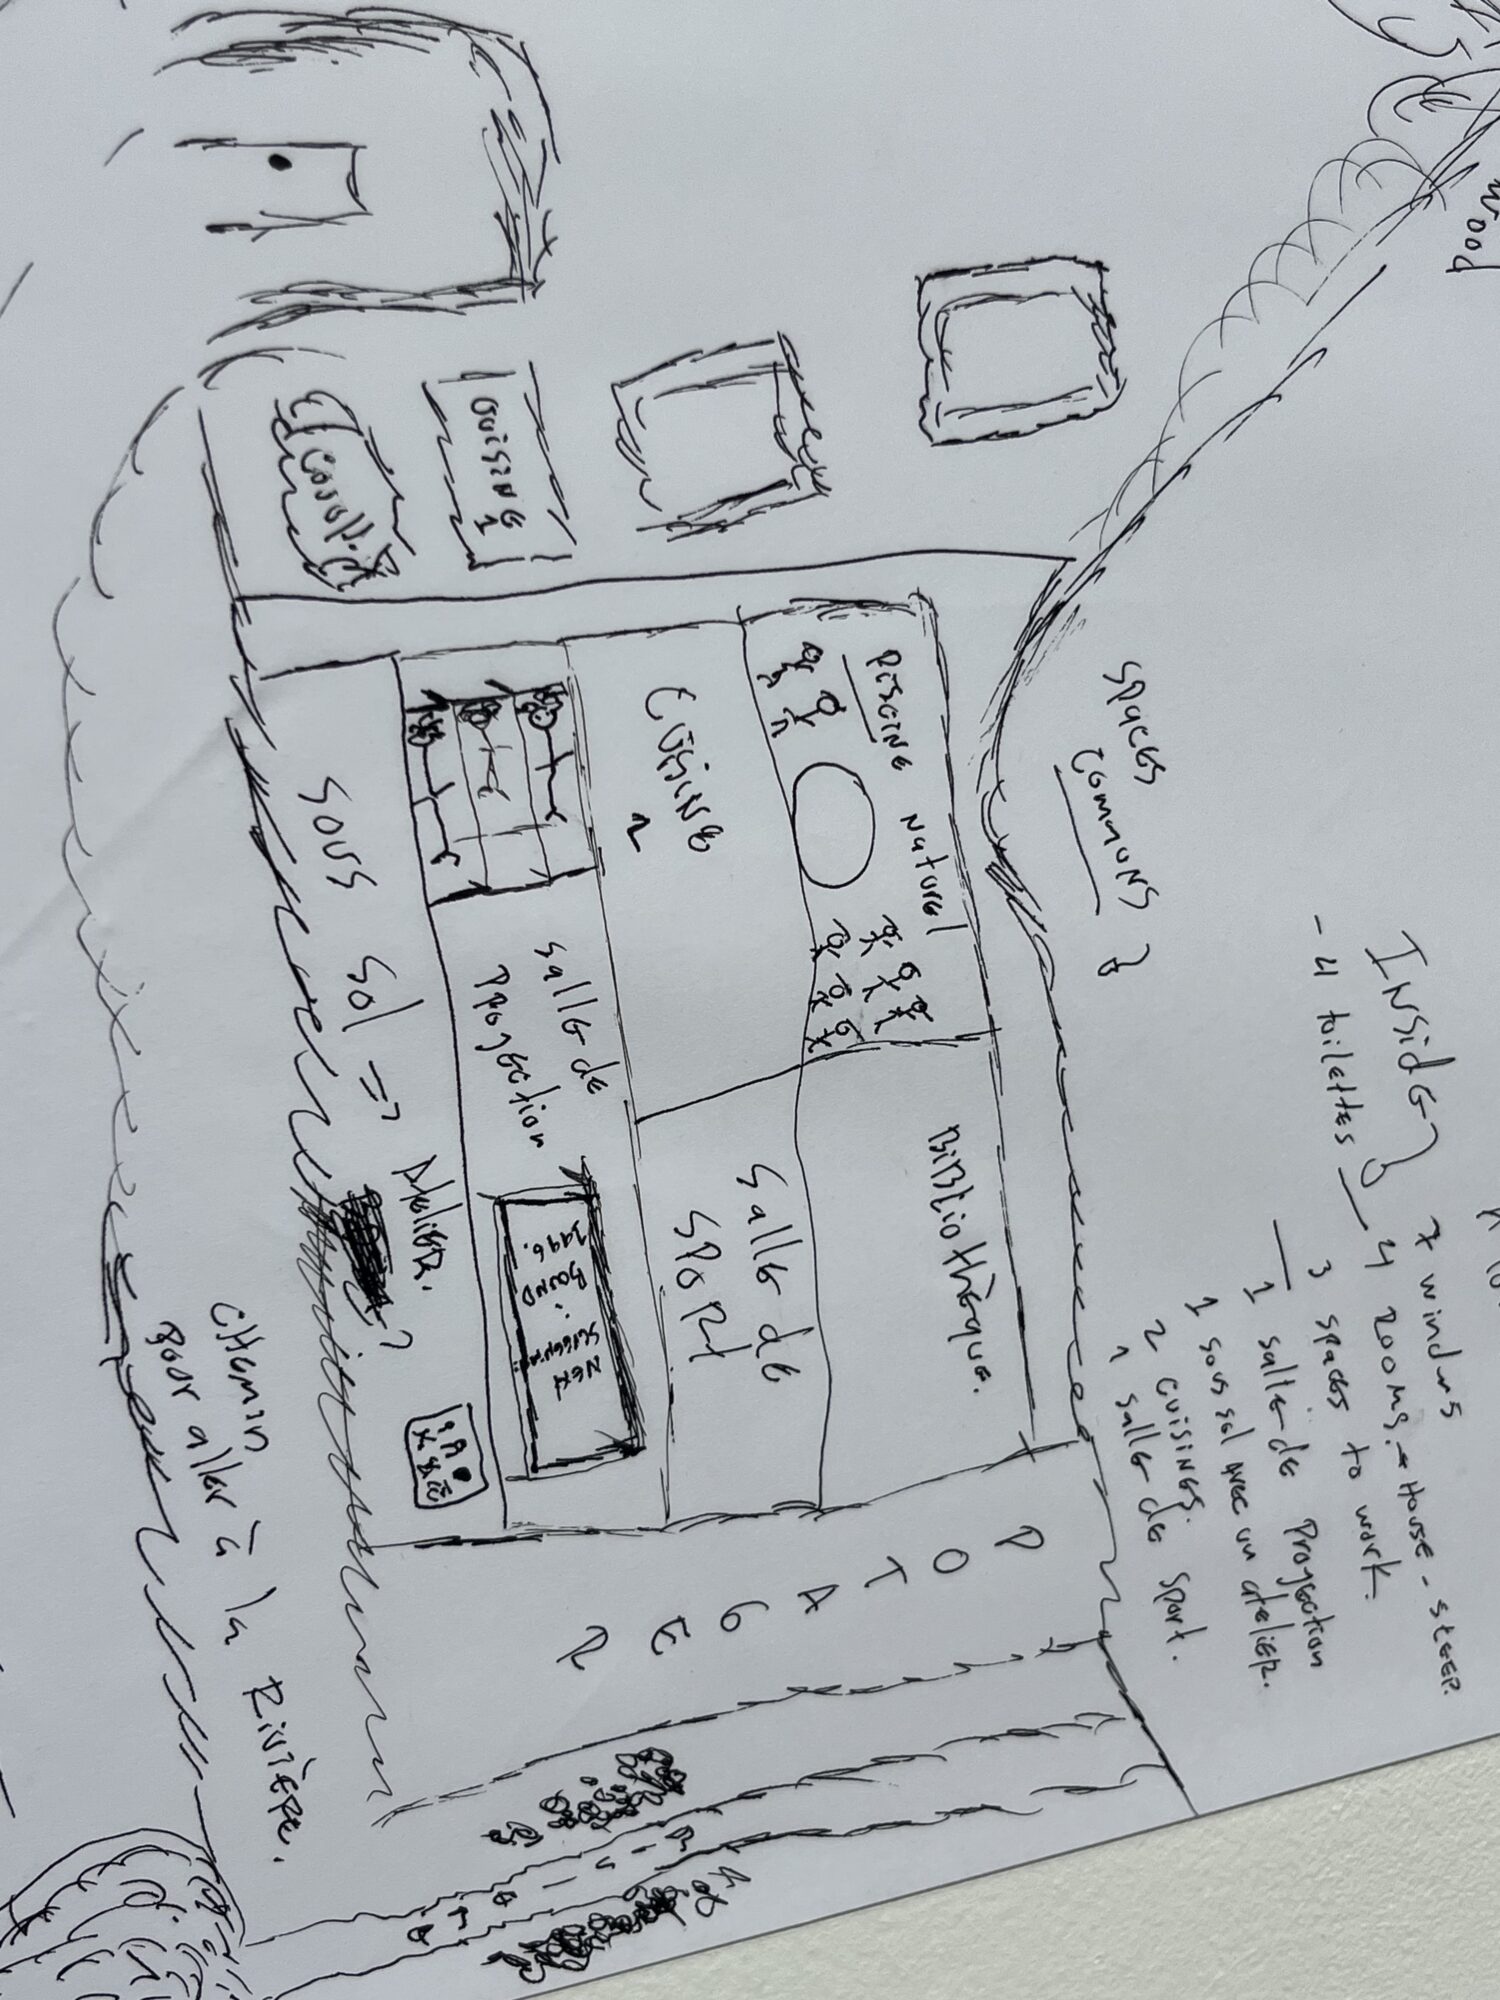 wood
Spaces
commons }
INSidE }
- 4 toilettes
* windws
4 rooms. → House - sleep.
3 spaces to work.
1 salle de Proyection
1 sous sol avec un atelier.
2 cuisines.
1 salle de sport.
Cuising
1
Piscine Naturel
Cuising
2
Bibliothèque.
Salle de
Sport
Salle de
Proyection
1996.
BOUND
NEXT
Sous Sol =>
Atelier.
POTAGER
Chemin
pour aller à la Rivière.